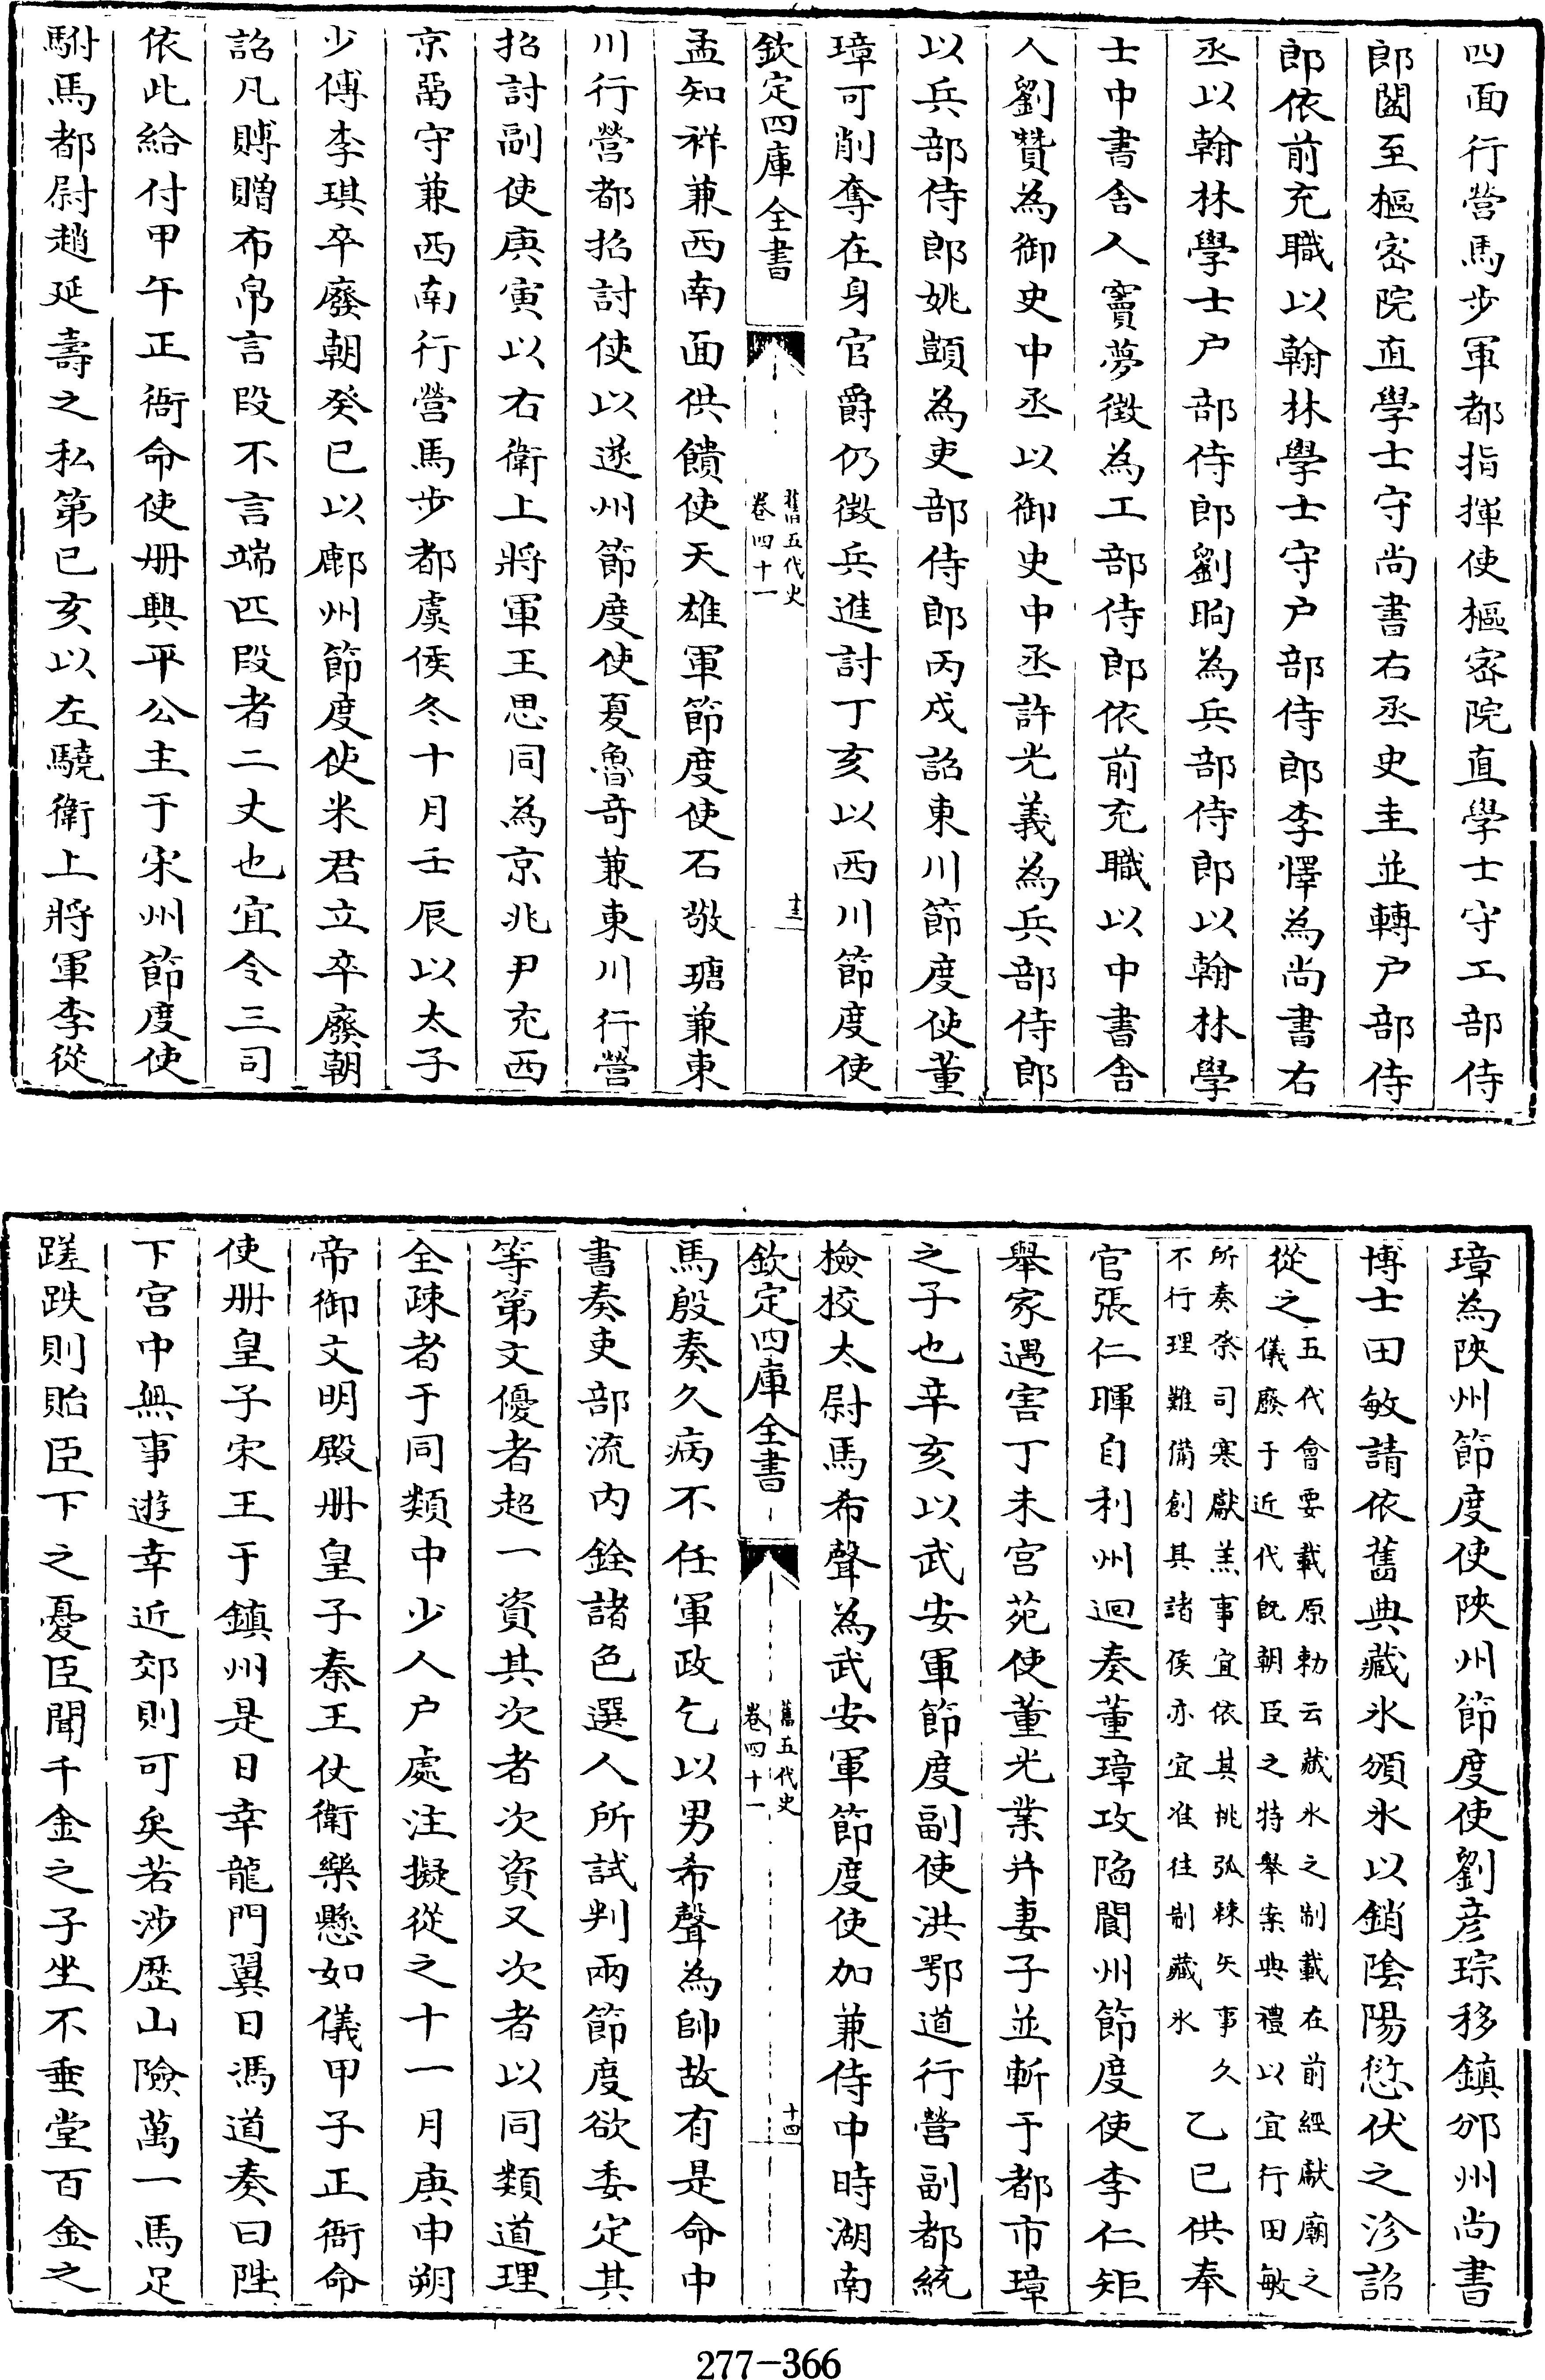 四面行營馬步軍都指揮使樞宻院直學士守工部侍
郎閻至樞宻院直學士守尚書右丞史圭並轉户部侍
郎依前充職以翰林學士守户部侍郎李懌為尚書右
丞以翰林學士户部侍郎劉昫為兵部侍郎以翰林學
士中書舎人竇夢徵為工部侍郎依前充職以中書舎
人劉贊為御史中丞以御史中丞許光義為兵部侍郎
以兵部侍郎姚顗為吏部侍郎丙戍詔東川節度使董
璋可削奪在身官爵仍徴兵進討丁亥以西川節度使
欽定四庫全書
舊五代史
卷四十一
十三
孟知祥兼西南面供饋使天雄軍節度使石敬瑭兼東
川行營都招討使以遂州節度使夏魯奇兼東川行營
招討副使庚寅以右衛上將軍王思同為京兆尹充西
京留守兼西南行營馬步都虞侯冬十月壬辰以太子
少傅李琪卒廢朝癸巳以鄜州節度使米君立卒廢朝
詔凡賻贈布帛言段不言端匹段者二丈也宜令三司
依此給付甲午正衙命使册興平公主于宋州節度使
駙馬都尉趙延壽之私第已亥以左驍衛上將軍李從
璋為陜州節度使陜州節度使劉彦琮移鎮邠州尚書
博士田敏請依舊典藏氷頒氷以銷陰陽愆伏之沴詔
從之五代會要載原勅云藏氷之制載在前經獻廟之
儀廢于近代既朝臣之特舉案典禮以宜行田敏
所奏祭司寒獻羔事宜依其桃弧棘矢事久
不行理難備創其諸侯亦宜准往制藏氷
乙巳供奉
官張仁暉自利州迴奏董璋攻陷閬州節度使李仁矩
舉家遇害丁未宫苑使董光業并妻子並斬于都市璋
之子也辛亥以武安軍節度副使洪鄂道行營副都統
檢校太尉馬希聲為武安軍節度使加兼侍中時湖南
欽定四庫全書
舊五代史
卷四十一
十四
馬殷奏久病不任軍政乞以男希聲為帥故有是命中
書奏吏部流内銓諸色選人所試判兩節度欲委定其
等第文優者超一資其次者次資又次者以同類道理
全疎者于同類中少人户處注擬從之十一月庚申朔
帝御文明殿册皇子秦王仗衛樂懸如儀甲子正衙命
使册皇子宋王于鎮州是日幸龍門翼日馮道奏曰陛
下宫中無事遊幸近郊則可矣若涉歴山險萬一馬足
蹉跌則貽臣下之憂臣聞千金之子坐不垂堂百金之
277-366